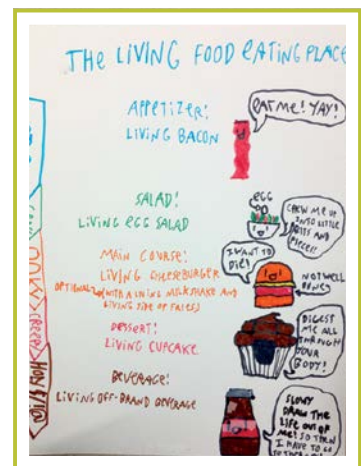 THE LIVING FOOD EATING PLACE
APPETIZER:
LIVING BACON
EAT ME! YAY!
SALAD:
LIVING EGG SALAD
EGG
CHEW ME UP
INTO LITTLE
BITS AND
PIECES!
MAIN COURSE:
LIVING CHEESEBURGER
OPTIONAL (WITH A LIVING MILKSHAKE AND
LIVING SIDE OF FRIES)
I WANT TO
DIE!
NOT WELL
DONE?
DESSERT:
LIVING CUPCAKE
DIGEST
ME ALL
THROUGH
YOUR
BODY!
BEVERAGE:
LIVING OFF-BRAND BEVERAGE
SLOWLY
DRAW THE
LIFE OUT OF
ME! SO THEN
I HAVE TO GO